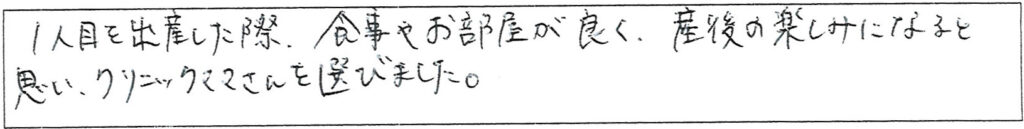 1人目を出産した際、食事やお部屋が良く、産後の楽しみになると
思い、クリニックママさんを選びました。